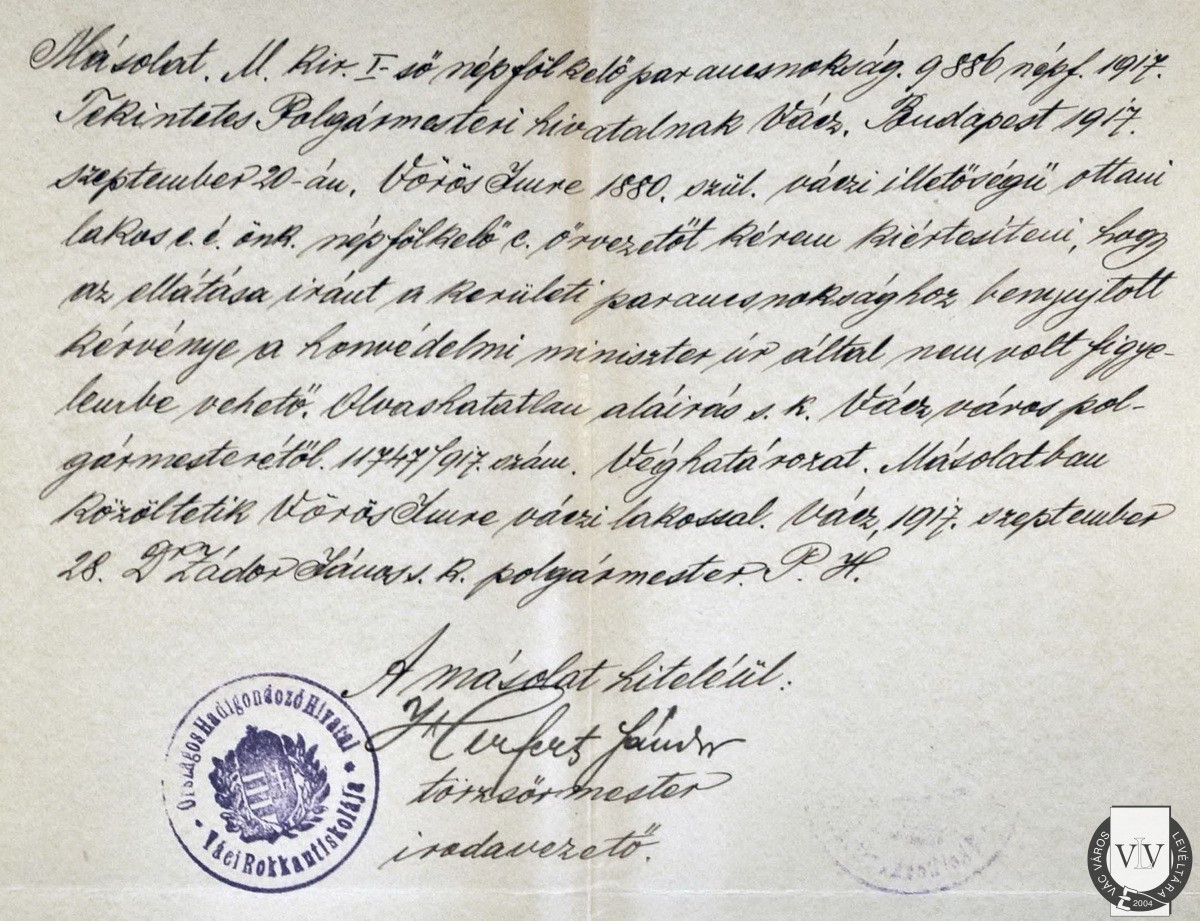 Másolat. M. kir. I-ső népfölkelő parancsnokság. 9886 népf. 1917.
Tekintetes Polgármesteri hivatalnak Vácz. Budapest 1917.
szeptember 20-án. Vörös Imre 1880. szül. váczi illetőségü ottani
lakos e. é. önk. népfölkelő c. őrvezetőt kérem kiértesíteni, hogy
az ellátása iránt a kerületi parancsnoksághoz benyujtott
kérvénye a honvédelmi miniszter úr által nem volt figye-
lembe vehető. Olvashatatlan aláirás s. k. Vácz város pol-
gármesterétől. 11747/917. szám. Véghatározat. Másolatban
közöltetik Vörös Imre váczi lakossal. Vácz, 1917. szeptember
28. Dr Zádor János s. k. polgármester. P. H.
A másolat hiteléül:
Sándor
törzsőrmester
irodavezető.
Országos Hadigondozó Hivatal
Váci Rokkantiskolája
VÁC VÁROS LEVÉLTÁRA
VLV
2004